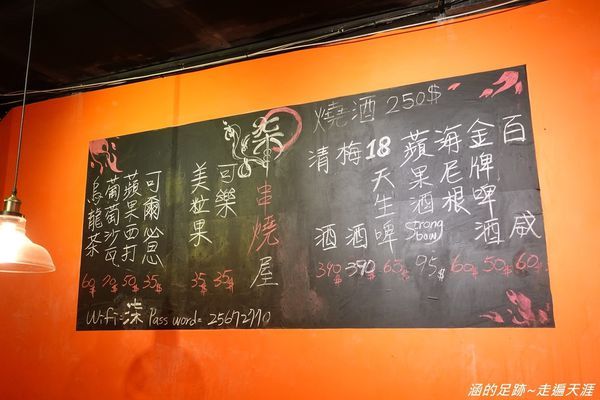 百威 60$
金牌啤酒 50$
海尼根 60$
蘋果酒 Strong bow 95$
18天生啤 65$
梅酒 390$
清酒 340$
燒酒 250$
柒串燒屋
可樂 35$
美粒果 35$
可爾必思 35$
蘋果西打 50$
葡萄沙瓦 70$
烏龍茶 60$
Wifi=柒 Password=25672770
涵的足跡~走遍天涯